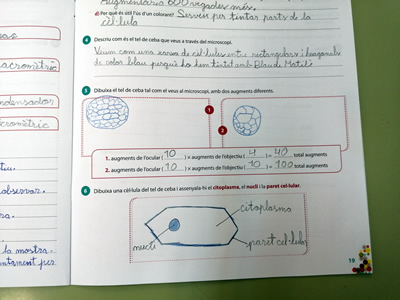 Augmentaria 600 vegades més.
d) Per què és útil l'ús d'un colorant? Serveix per tintar parts de la
cèl·lula
4 Descriu com és el tel de ceba que veus a través del microscopi.
Veuim com una xarxa de cèl·lules entre rectangulars i hexagonals
de color blau perquè ho hem tintat amb Blau de Metilè
5 Dibuixa el tel de ceba tal com el veus al microscopi, amb dos augments diferents.
1
2
1. augments de l'ocular ( 10 ) × augments de l'objectiu ( 4 ) = 40 total augments
2. augments de l'ocular ( 10 ) × augments de l'objectiu ( 10 ) = 100 total augments
6 Dibuixa una cèl·lula del tel de ceba i assenyala-hi el citoplasma, el nucli i la paret cel·lular.
citoplasma
nucli
paret cel·lular
19
macromètric
condensador
micromètric
observar.
la mostra.